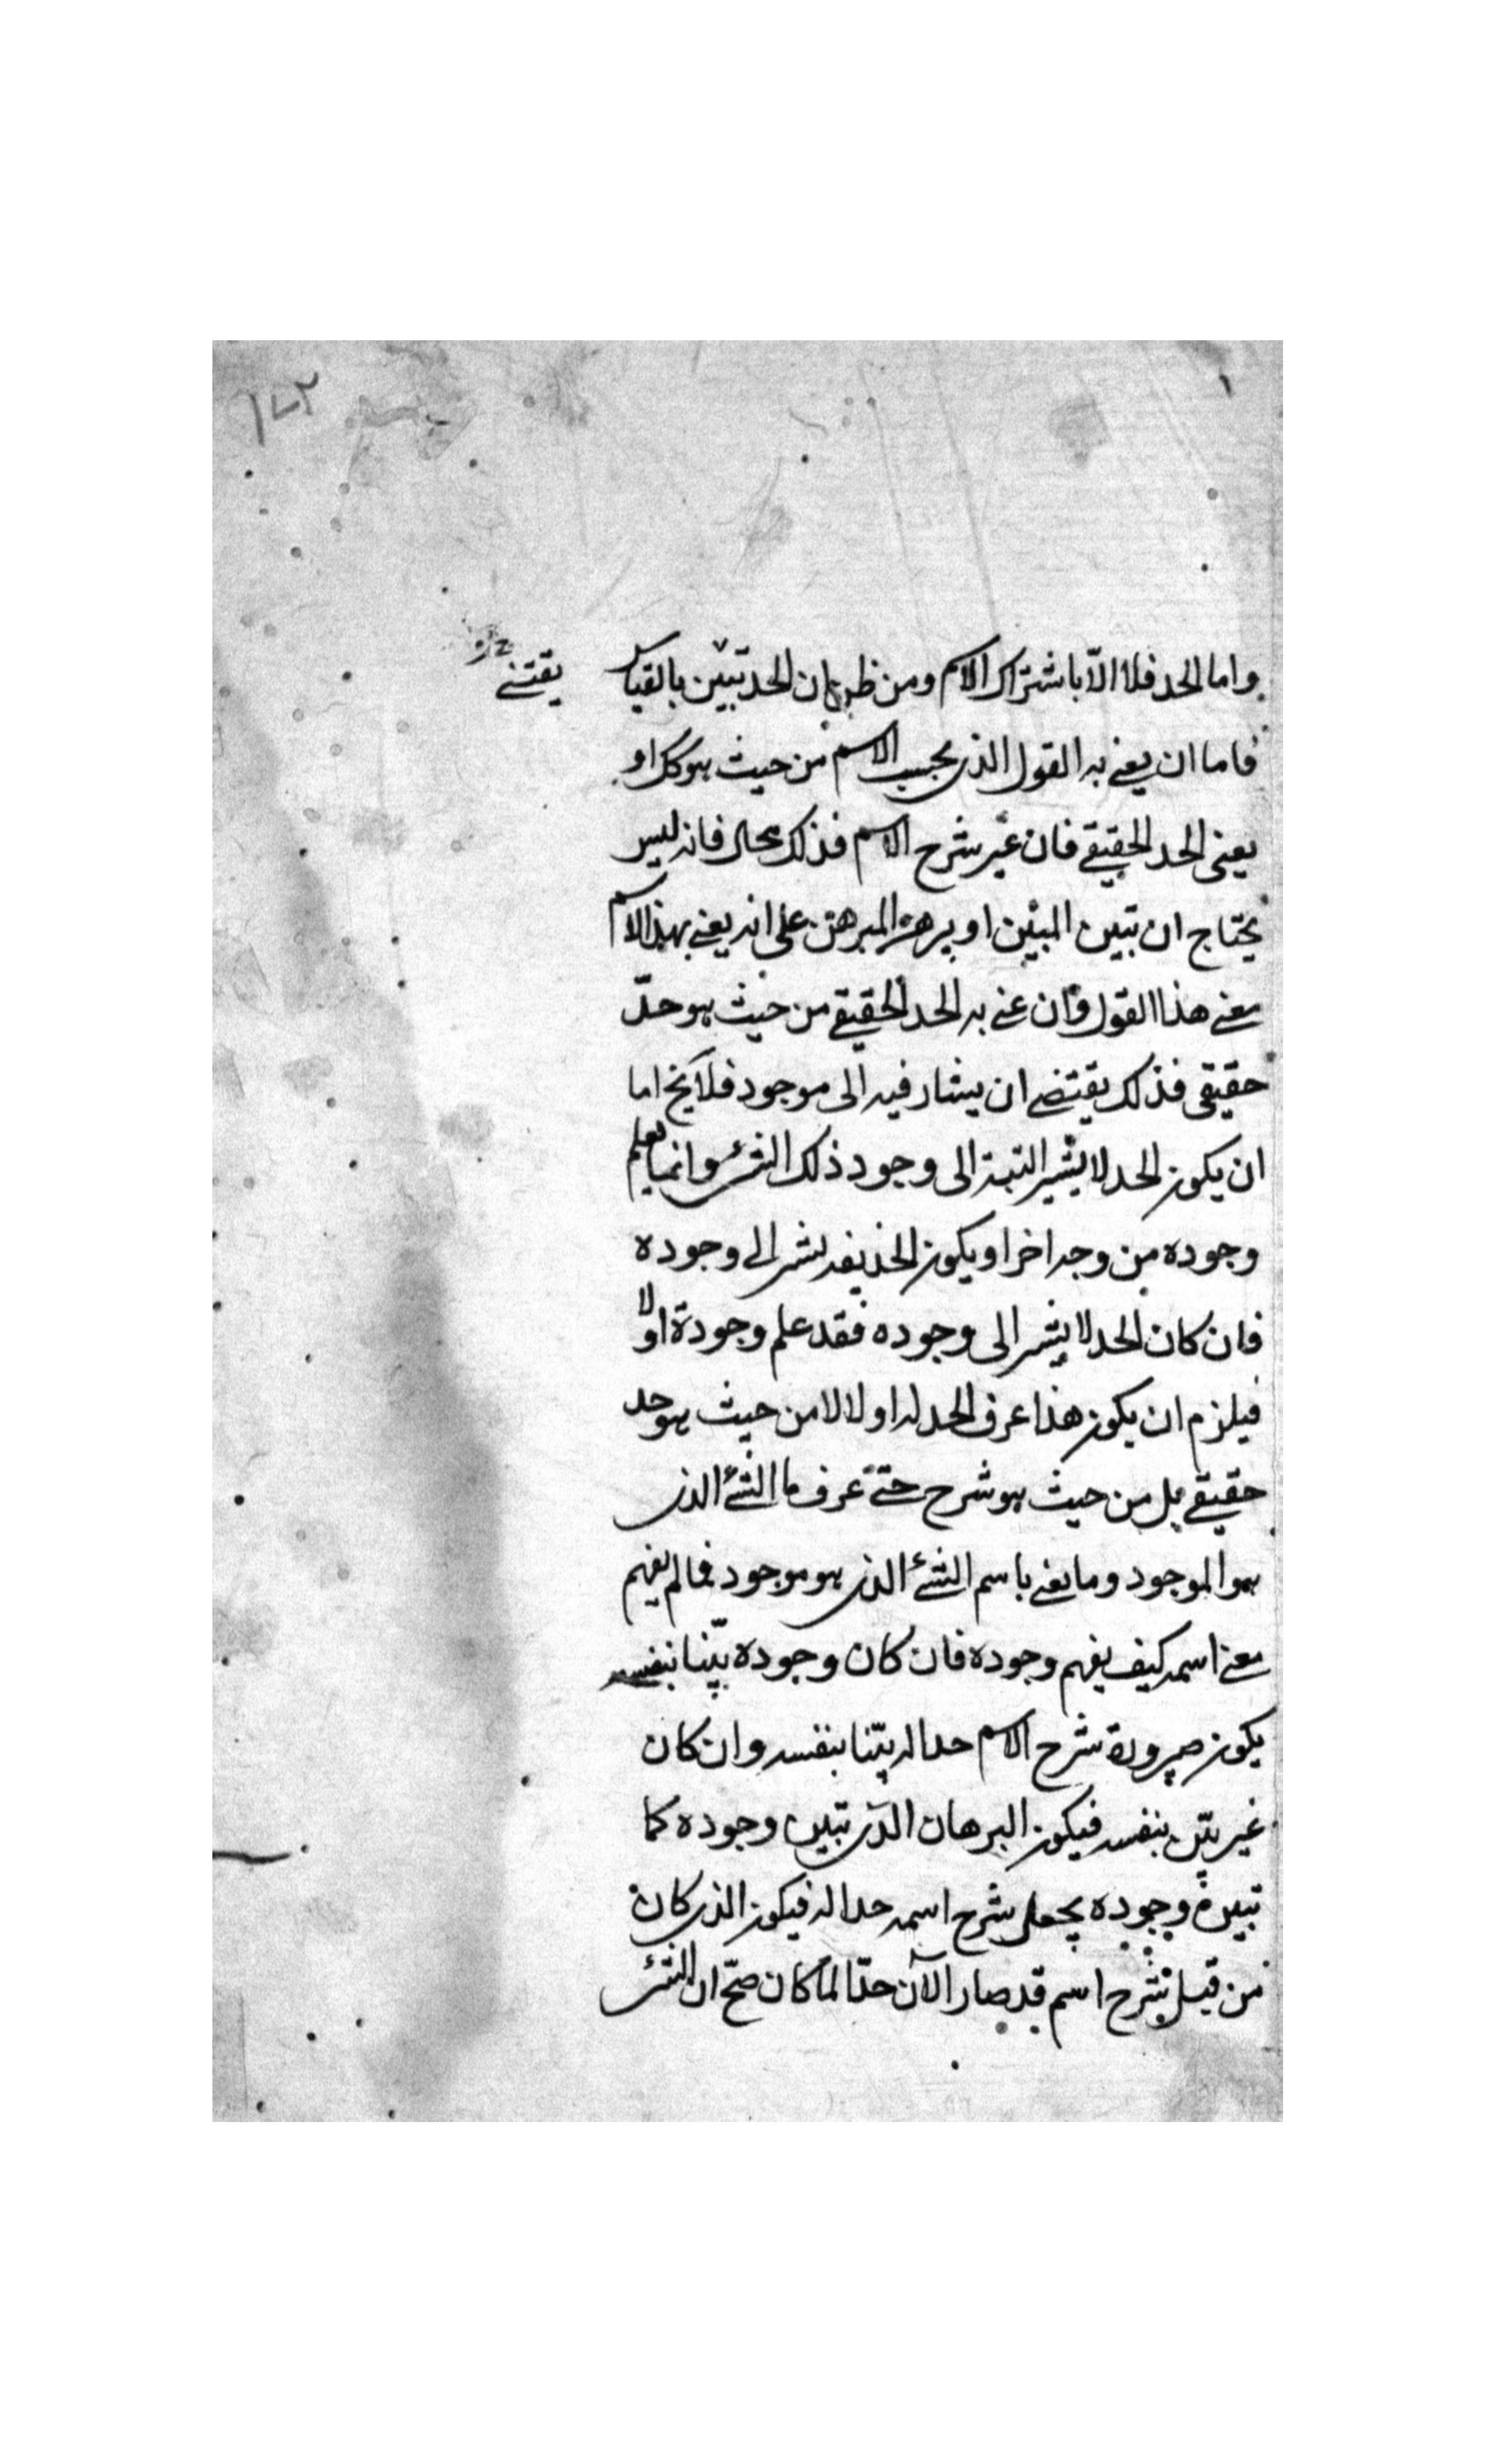 واما الحد فلا الا باشتراك الاسم ومن ظن ان الحد تبين بالقياس
يقتنے
فاما ان يعنے به القول الذى بحسب الاسم من حيث هو كك او
يعنى الحد الحقيقے فان عنى شرح الاسم فذلك محال فانه ليس
يحتاج ان تبين المبين او يرهن المبرهن على انه يعنے بهذا الاسم
معنے هذا القول وان عنے به الحد الحقيقے من حيث هو حدّ
حقيقى فذلك يقتضے ان يشار فيه الى موجود فلا يخ اما
ان يكون الحد لا يشير البتة الى وجود ذلك الشئ وانما يعلم
وجوده من وجه اخر او يكون الحد نفسه يشير الى وجوده
فان كان الحد لا يشير الى وجوده فقد علم وجودة اولا
فيلزم ان يكون هذا عرف الحد له اولا لا من حيث هو حد
حقيقے بل من حيث هو شرح حتے عرف ما الشئ الذى
هو الموجود وما يعنے باسم الشئ الذى هو موجود فما لم يفهم
معنے اسمه كيف يفهم وجوده فان كان وجوده بيّنا بنفسه
يكون صيرورة شرح الاسم حدا له بيّنا بنفسه وان كان
غير بيّن بنفسه فيكون البرهان الذى تبين وجوده كما
تبين وجوده يجعل شرح اسمه حدا له فيكون الذى كان
من قبل شرح اسم قد صار الآن حدّا لما كان صحّ ان الشئ